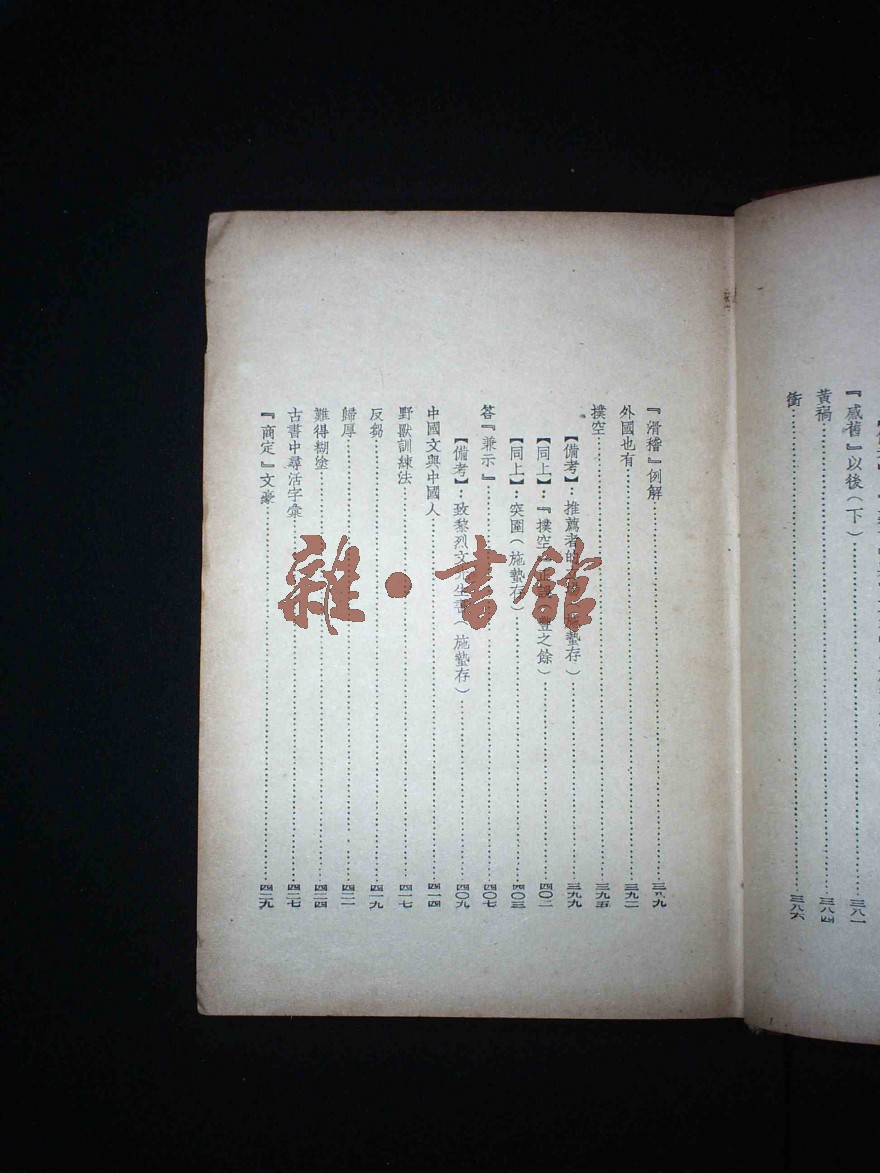 『感舊』以後（下）……三八一
黃禍……三八四
衝……三八六
『滑稽』例解……三八九
外國也有……三九二
撲空……三九五
【備考】：推薦者的 施蟄存）……三九九
【同上】：『撲空 正說 豐之餘）……四〇二
【同上】：突圍（施蟄存）……四〇三
答『兼示』……四〇七
【備考】：致黎烈文先生書（施蟄存）……四〇九
中國文與中國人……四一四
野獸訓練法……四一七
反芻……四一九
歸厚……四二一
難得糊塗……四二四
古書中尋活字彙……四二七
『商定』文豪……四二九
雜·書館